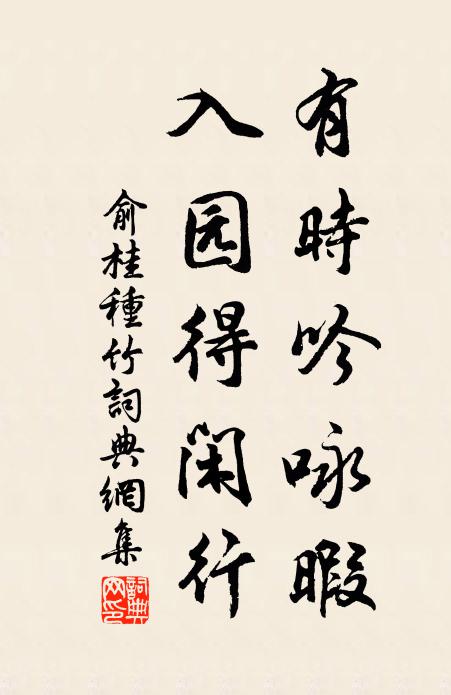 有時吟咏暇
入园得閑行
俞桂種竹詞典網集
詞典网印